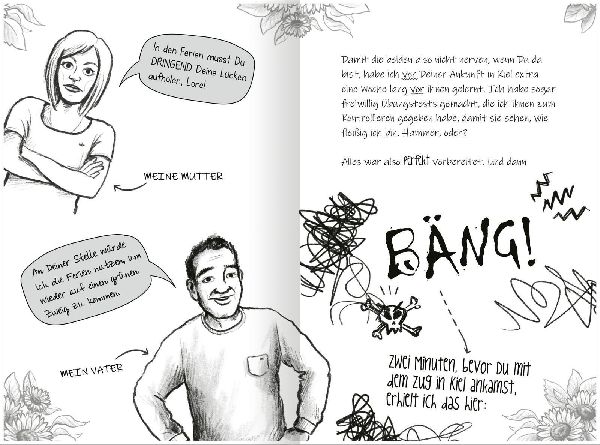 In den Ferien musst Du
DRINGEND Deine Lücken
aufholen, Lore!
MEINE MUTTER
An Deiner Stelle würde
ich die Ferien nutzen, um
wieder auf einen grünen
Zweig zu kommen.
MEIN VATER
Damit die beiden also nicht nerven, wenn Du da
bist, habe ich vor Deiner Ankunft in Kiel extra
eine Woche lang vor ihnen gelernt. Ich habe sogar
freiwillig Übungstests gemacht, die ich ihnen zum
Kontrollieren gegeben habe, damit sie sehen, wie
fleißig ich bin. Hammer, oder?
Alles war also perfekt vorbereitet. Und dann
BÄNG!
Zwei Minuten, bevor Du mit
dem Zug in Kiel ankamst,
erhielt ich das hier: